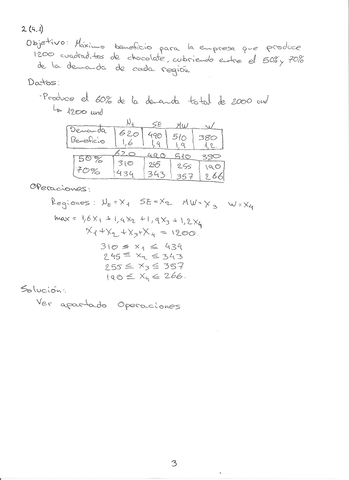 2 (4.1)
Objetivo: Máximo beneficio para la empresa que produce
1200 cuadraditos de chocolate, cubriendo entre el 50% y 70%
de la demanda de cada región
Datos:
· Produce el 60% de la demanda total de 2000 und
↳ 1200 und
NE SE MW W
Demanda 620 490 510 380
Beneficio 1,6 1,4 1,9 1,2
620 490 510 380
50% 310 255 190
70% 434 343 357 266
Operaciones:
Regiones: NE = X1 SE = X2 MW = X3 W = X4
max = 1,6X1 + 1,4X2 + 1,9X3 + 1,2X4
X1 + X2 + X3 + X4 = 1200
310 ≤ X1 ≤ 434
245 ≤ X2 ≤ 343
255 ≤ X3 ≤ 357
190 ≤ X4 ≤ 266
Solución:
Ver apartado Operaciones
3